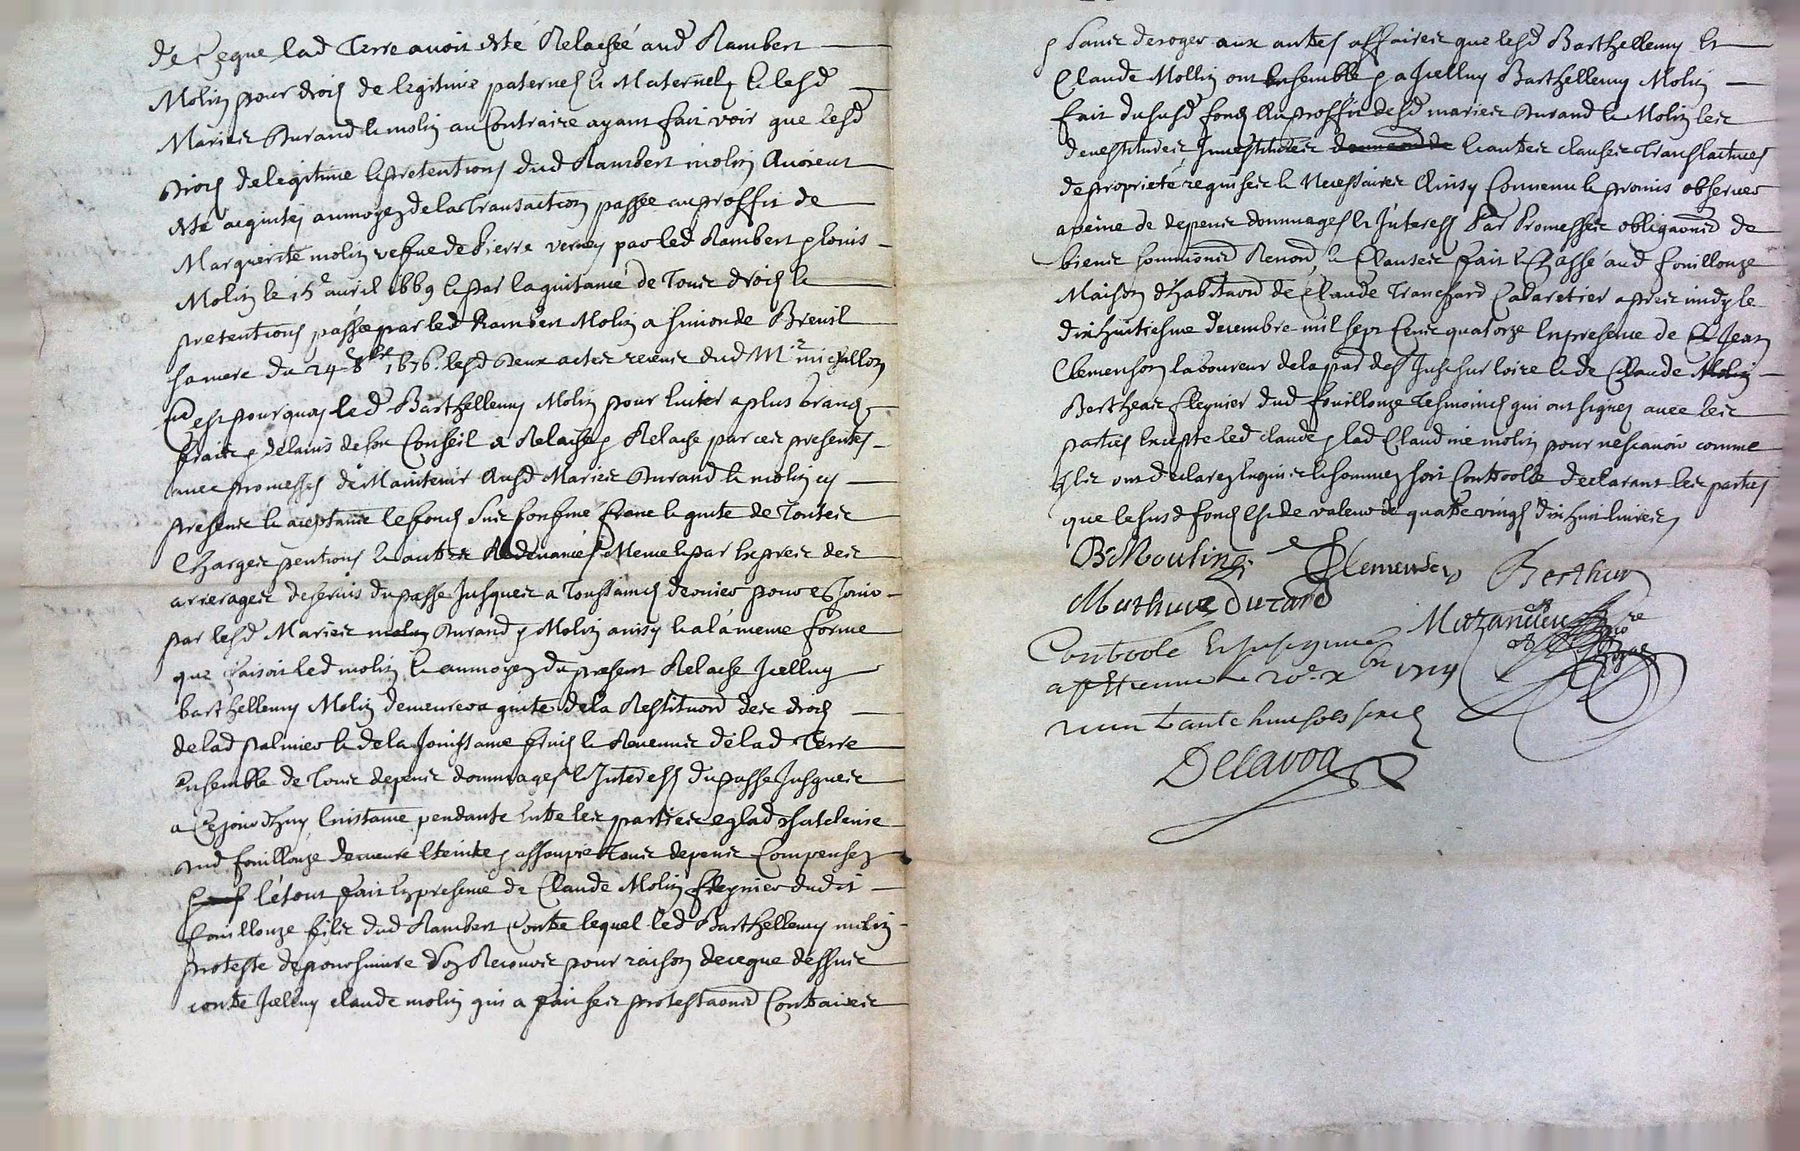 de ce que lad terre avoit esté Relachée aud Rambert
Molin pour droit de legitime paternel & Maternel & lesd
Mariez Durand & molin au Contraire ayant fait voir que lesd
droits de legitime & pretentions dud Rambert molin Avoient
esté acquités au moyen de la Transaction passée au proffit de
Marguerite molin vefve de Pierre verney par led Rambert
Molin le 15e avril 1669 & par la quitance de Tous droits &
pretentions passée par led Rambert Molin a simonde Breuil
sa mere du 24 8bre 1676 lesd deux actes receus dud Mre michallon
C'est pourquoy led Barthellemy Molin pour Eviter a plus grands
fraits de lavis de son Conseil a Relaché & Relache par ces presentes
avec promesses de Maintenir Ausd Mariez Durand & molin cy
presents & acceptants le fonds sus confiné franc & quite de Toutes
Charges pentions & autres Redevances Meme & par exprès des
arrerages de servis du passé Jusques a Toussaincts dernier pour en Jouir
par lesd Mariez molin Durand & Molin ainsy & a la meme forme
que faisoit led molin & au moyen du present Relache Icelluy
barthellemy Molin demeurera quite de la Restituond des droits
de lad palmier & de la Jouissance fruits & Revenus de lad Terre
Ensemble de Tous depens dommages & Interests du passé Jusques
a Ce jourdhuy l'instance pendante Entre les parties en lad chatelenie
dud fouillouze demeure Eteinte & assoupie Tous depens Compensez
le tout fait En presence de Claude Molin Cleynier dudit
fouillouze fils dud Rambert Contre lequel led Barthellemy molin
proteste de poursuivre son Recouvre pour raison de ce que dessus
contre Icelluy claude molin qui a fait ses protestaonds Contraires
& Sans deroger aux autres affaires que lesd Barthellemy Et
Claude Mollin ont Ensemble & a Icelluy Barthellemy Molin
fait du susd fonds Au proffit desd mariez Durand & Molin les
devestitures Jnvestitures & autres clauses Translatives
de proprieté requises & Necessaires Ainsy Convenu & promis observer
a peine de depens dommages & Interests Par Promesses obligaonds de
biens soumionds Renond & Clauses fait & Passé aud fouillouze
Maison d'habitaond de Claude Tranchard Cabaretier apres midy le
dixhuitiesme decembre mil sept Cents quatorze En presence de Jean
Clemenson laboureur de la part de St Just sur loire & de Claude Molin
Berthear Cleynier dud fouillouze Tesmoincts qui ont signez avec les
parties Excepté led claude & lad Claudine molin pour ne scavoir comme
Ils ont declarez Enquis & sommez soit Controollé declarant les parties
que le susd fonds Est de valeur de quatre vingt dix huit livres
B: Moulin
Clemenson
Berthear
Mathieu durand
Mazandieu
Controolé
a st Etienne le 20e xbre 1714
Delavoa